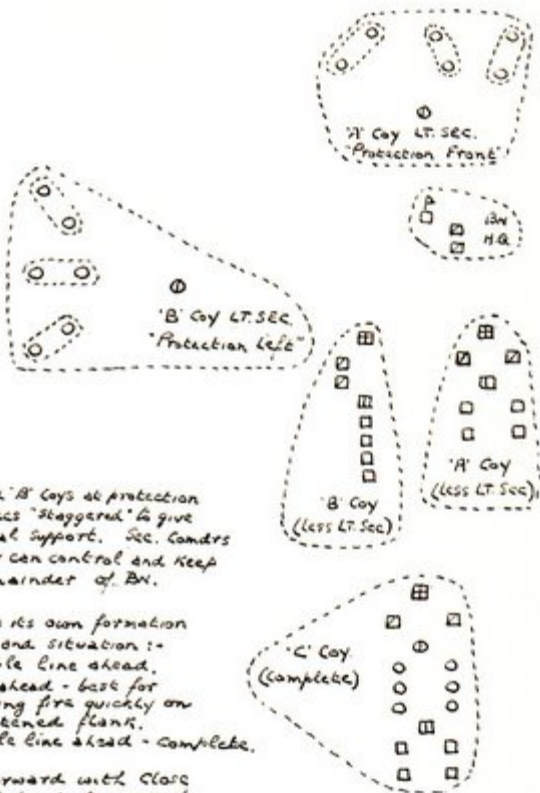 'A' Coy LT. SEC.
"Protection Front"
BN
H.Q
'B' Coy LT. SEC.
"Protection Left"
'B' Coy
(less LT. Sec)
'A' Coy
(less LT. Sec)
'B' Coys at protection
"staggered" to give
support. Sec. Comdrs
can control and keep
of BN.
its own formation
and situation :-
line ahead.
ahead - best for
fire quickly on
flank.
line ahead - complete.
with close
'C' Coy
(complete)